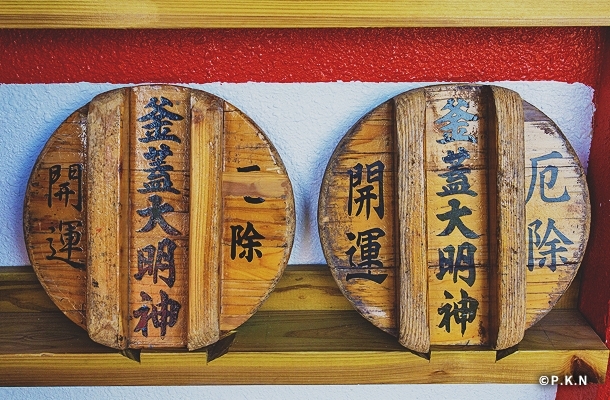 二除
釜蓋大明神
開運
厄除
釜蓋大明神
開運
©P.K.N